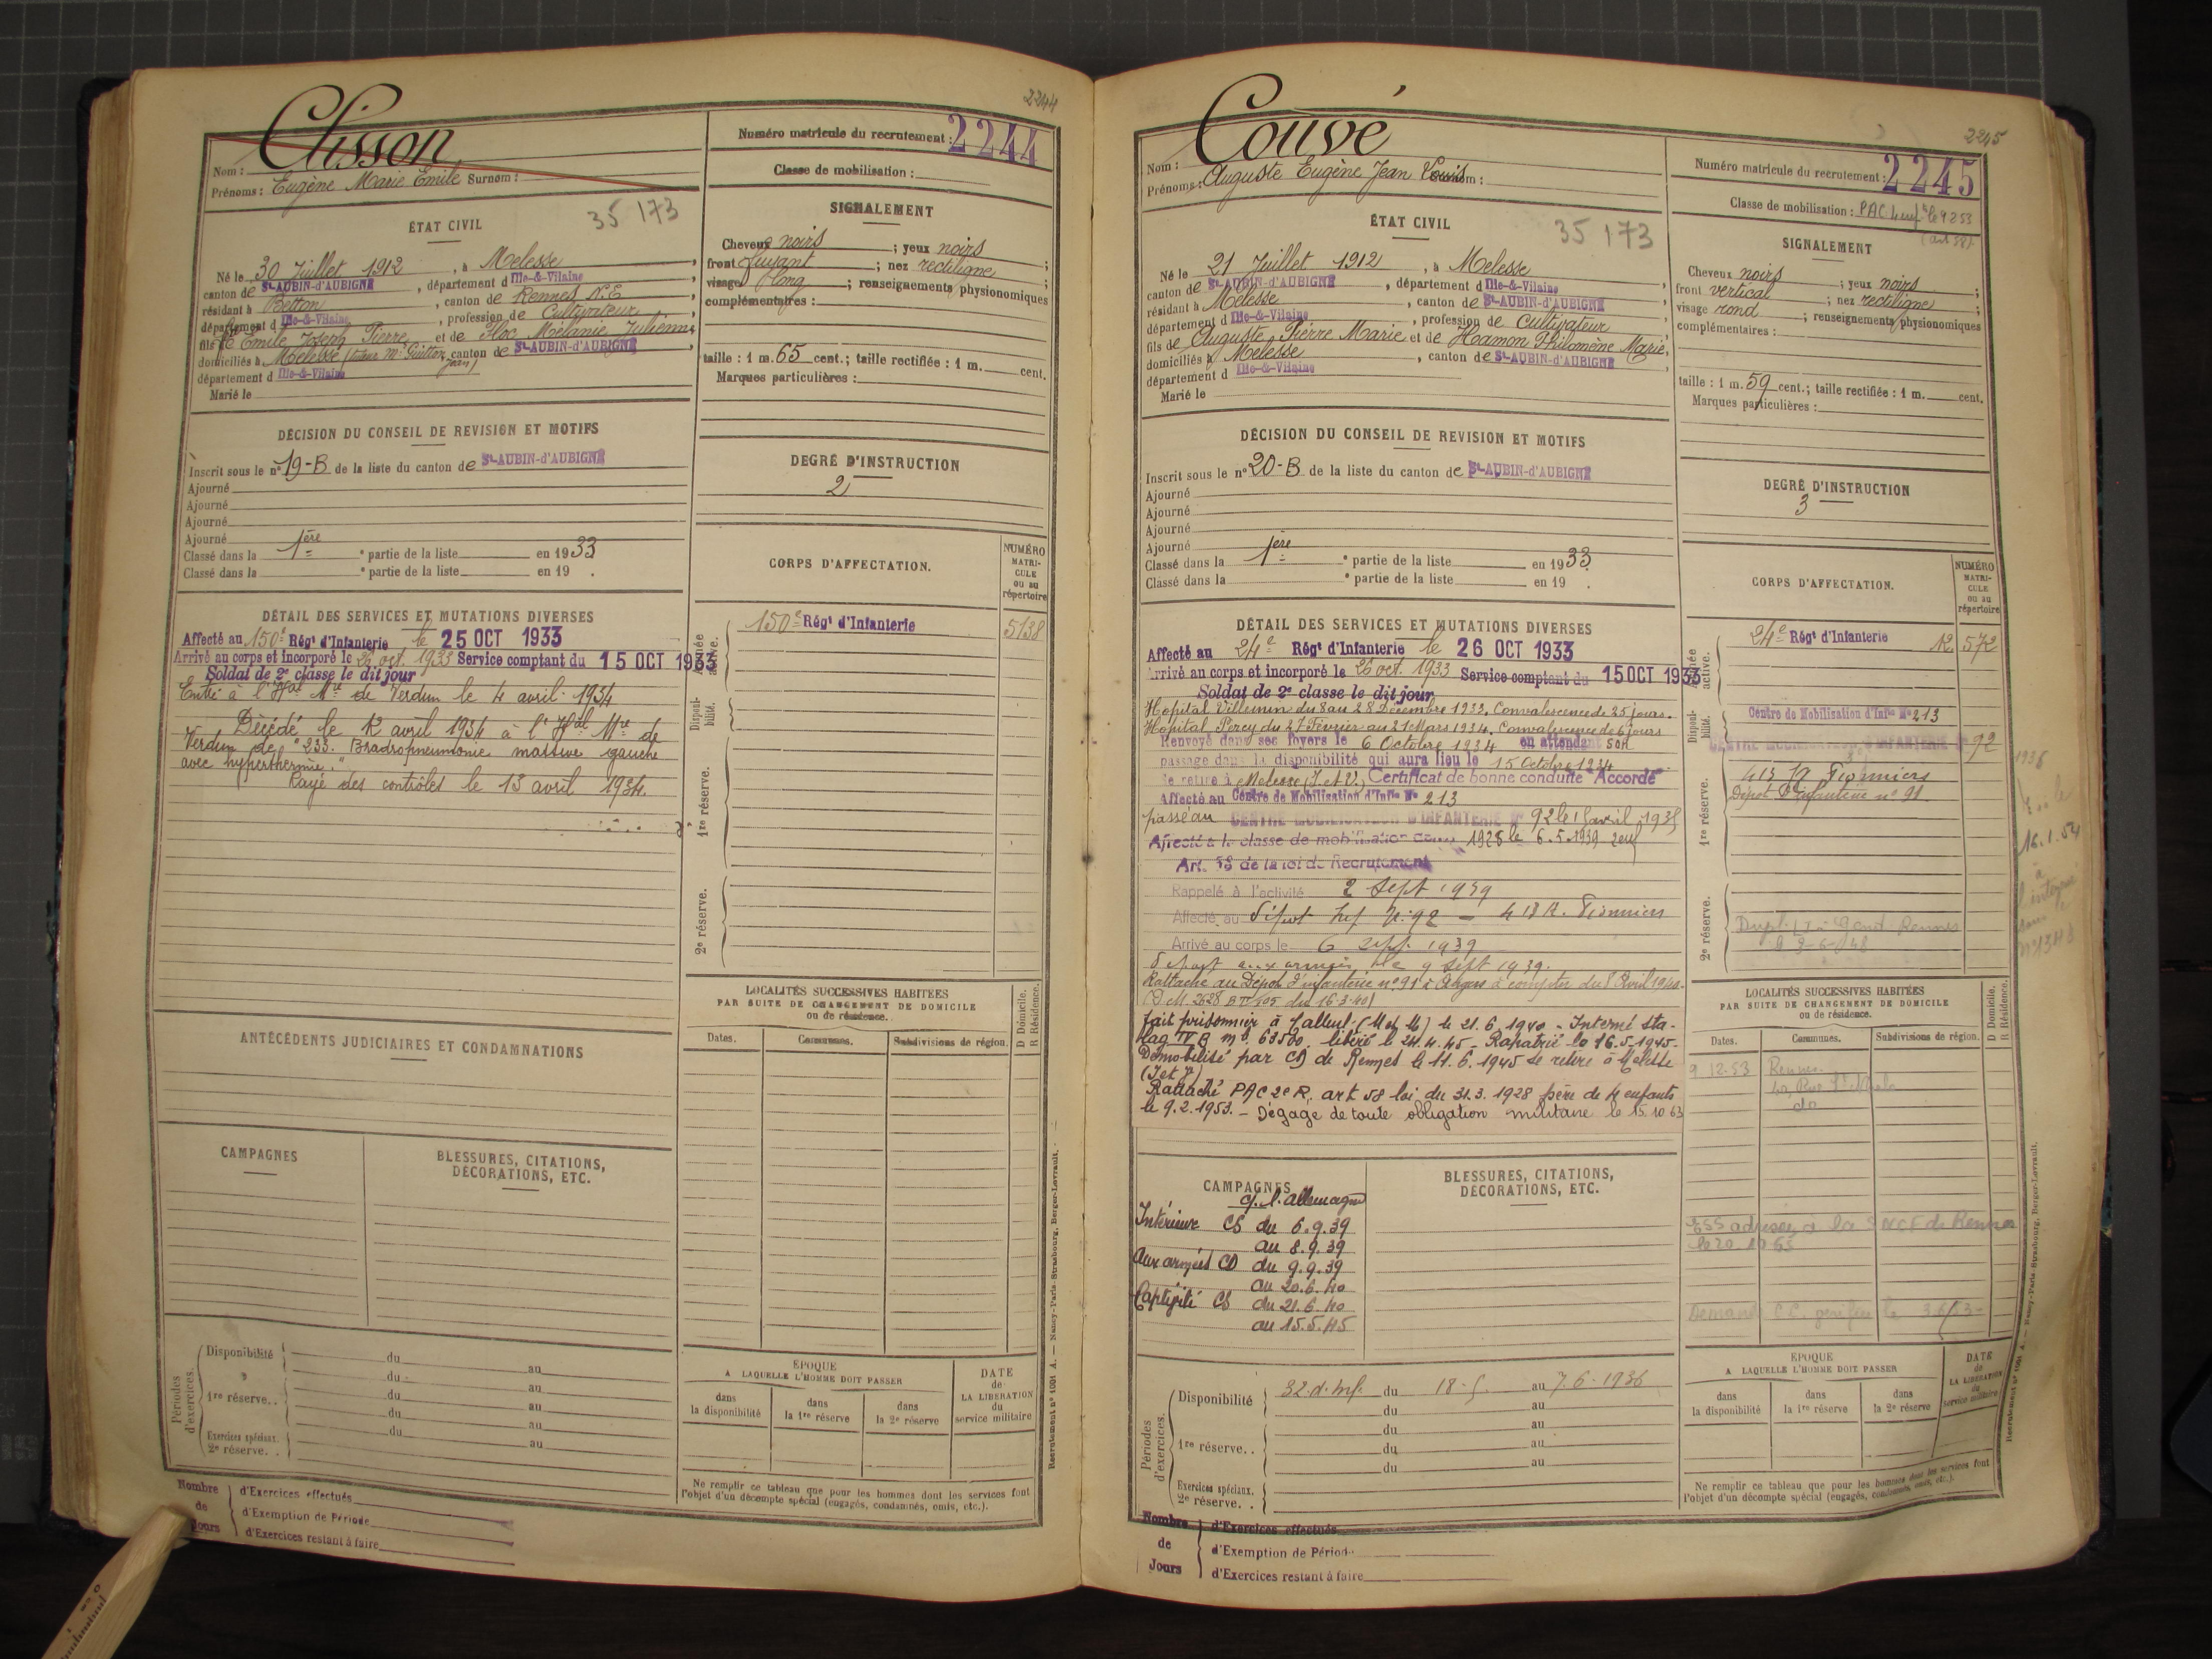 2244
Clisson
Nom :
Prénoms : Eugène Marie Emile Surnom :
Numéro matricule du recrutement : 2244
Classe de mobilisation :
ÉTAT CIVIL
35 173
Né le 30 Juillet 1912, à Melesse,
canton de St-AUBIN-d'AUBIGNÉ, département d Ille-&-Vilaine
résidant à Betton, canton de Rennes N.E,
département d Ille-&-Vilaine, profession de Cultivateur
fils de Emile Joseph Pierre et de Floc Mélanie Julienne,
domiciliés à Melesse (tuteur Mr Guitton Jean) canton de St-AUBIN-d'AUBIGNÉ,
département d Ille-&-Vilaine
Marié le
SIGNALEMENT
Cheveux noirs ; yeux noirs ;
front fuyant ; nez rectiligne ;
visage long ; renseignements physionomiques
complémentaires :
taille : 1 m. 65 cent. ; taille rectifiée : 1 m. cent.
Marques particulières :
DÉCISION DU CONSEIL DE REVISION ET MOTIFS
Inscrit sous le n° 19-B de la liste du canton de St-AUBIN-d'AUBIGNÉ
Ajourné
Ajourné
Ajourné
Ajourné
Classé dans la 1ère partie de la liste en 1933
Classé dans la e partie de la liste en 19 .
DEGRÉ D'INSTRUCTION
2
DÉTAIL DES SERVICES ET MUTATIONS DIVERSES
Affecté au 150e Régt d'Infanterie le 25 OCT 1933
Arrivé au corps et incorporé le 26 oct. 1933 Service comptant du 15 OCT 1933
Soldat de 2e classe le dit jour
Entré à l'Hal Mre de Verdun le 4 avril 1934
Décédé le 12 avril 1934 à l'Hal Mre de
Verdun de "233. Broadropneumonie massive gauche
avec hyperthermie."
Rayé des contrôles le 13 avril 1934.
CORPS D'AFFECTATION.
NUMÉRO MATRI-CULE ou au répertoire
Armée active.
150e Régt d'Infanterie 5138
Disponibilité.
1re réserve.
2e réserve.
ANTÉCÉDENTS JUDICIAIRES ET CONDAMNATIONS
LOCALITÉS SUCCESSIVES HABITÉES
PAR SUITE DE CHANGEMENT DE DOMICILE
ou de résidence.
D Domicile. R Résidence.
Dates. Communes. Subdivisions de région.
CAMPAGNES
BLESSURES, CITATIONS,
DÉCORATIONS, ETC.
Périodes d'exercices.
Disponibilité du au
du au
1re réserve. . du au
du au
Exercices spéciaux. du au
2e réserve. .
ÉPOQUE
A LAQUELLE L'HOMME DOIT PASSER
dans la disponibilité
dans la 1re réserve
dans la 2e réserve
DATE de LA LIBÉRATION du service militaire
Ne remplir ce tableau que pour les hommes dont les services font
l'objet d'un décompte spécial (engagés, condamnés, omis, etc.).
Nombre de Jours
d'Exercices effectués
d'Exemption de Période
d'Exercices restant à faire
Recrutement n° 1001 A. — Nancy-Paris-Strasbourg, Berger-Levrault.
2245
Couvé
Nom :
Prénoms : Auguste Eugène Jean Louis Surnom :
Numéro matricule du recrutement : 2245
Classe de mobilisation : PAC le 9 2 53
(art 58)
ÉTAT CIVIL
35 173
Né le 21 Juillet 1912, à Melesse
canton de St-AUBIN-d'AUBIGNÉ, département d Ille-&-Vilaine
résidant à Melesse, canton de St-AUBIN-d'AUBIGNÉ
département d Ille-&-Vilaine, profession de Cultivateur
fils de Auguste Pierre Marie et de Hamon Philomène Marie,
domiciliés à Melesse, canton de St-AUBIN-d'AUBIGNÉ,
département d Ille-&-Vilaine
Marié le
SIGNALEMENT
Cheveux noirs ; yeux noirs ;
front vertical ; nez rectiligne ;
visage rond ; renseignements physionomiques
complémentaires :
taille : 1 m. 59 cent. ; taille rectifiée : 1 m. cent.
Marques particulières :
DÉCISION DU CONSEIL DE REVISION ET MOTIFS
Inscrit sous le n° 20-B de la liste du canton de St-AUBIN-d'AUBIGNÉ
Ajourné
Ajourné
Ajourné
Ajourné
Classé dans la 1ère partie de la liste en 1933
Classé dans la e partie de la liste en 19 .
DEGRÉ D'INSTRUCTION
3
DÉTAIL DES SERVICES ET MUTATIONS DIVERSES
Affecté au 24e Régt d'Infanterie le 26 OCT 1933
Arrivé au corps et incorporé le 26 oct. 1933 Service comptant du 15 OCT 1933
Soldat de 2e classe le dit jour
Hopital Villemin du 8 au 28 Décembre 1933. Convalescence de 25 jours.
Hopital Percy du 27 Février au 21 Mars 1934. Convalescence de 6 jours
Renvoyé dans ses foyers le 6 Octobre 1934 en attendant son
passage dans la disponibilité qui aura lieu le 15 Octobre 1934
Se retire à Melesse (I. et V.) Certificat de bonne conduite "Accordé"
Affecté au Centre de Mobilisation d'Infie N° 213
passé au CENTRE MOBILISATION D'INFANTERIE N° 92 le 1 avril 193
Affecté à la classe de mobilisation 1928 le 6.5.1939 2 enf
Art. 58 de la loi de Recrutement
Rappelé à l'activité 2 Sept 1939
Affecté au Dépôt Inf n° 92 — 413 R. Pionniers
Arrivé au corps le 6 sept. 1939
Départ aux armées le 9 Sept 1939.
Rattaché au Dépôt d'infanterie n° 91 à Angers à compter du 8 Avril 1940.
(D.M. 2628 du 16.3.40)
fait prisonnier à (M et M) le 21.6.1940 - Interné sta-
lag IV B mle 63500. libéré le 24.4.45 - Rapatrié le 16.5.1945-
Démobilisé par CD de Rennes le 11.6.1945 se retire à Melesse
(I et V)
Rattaché PAC 2e R. art 58 loi du 31.3.1928 père de 4 enfants
le 9.2.1953. - Dégagé de toute obligation militaire le 15 10 63
CORPS D'AFFECTATION.
NUMÉRO MATRI-CULE ou au répertoire
Armée active.
24e Régt d'Infanterie 12 572
Disponibilité.
Centre de Mobilisation d'Infie N° 213
CENTRE MOBILISATION D'INFANTERIE N° 92
1re réserve.
413 R Pionniers
Dépôt d'infanterie n° 91
16.1.54
2e réserve.
LOCALITÉS SUCCESSIVES HABITÉES
PAR SUITE DE CHANGEMENT DE DOMICILE
ou de résidence.
D Domicile. R Résidence.
Dates. Communes. Subdivisions de région.
9 12.53 Rennes
Rue St Malo
do
CAMPAGNES
c/ l'allemagne
Intérieur CS du 6.9.39
au 8.9.39
Aux armées CD du 9.9.39
au 20.6.40
Captivité CS du 21.6.40
au 15.5.45
BLESSURES, CITATIONS,
DÉCORATIONS, ETC.
ESS adressé à la SNCF de Rennes
le 20 10 65
Périodes d'exercices.
Disponibilité 32 d'inf. du 18-5 au 7.6-1936
du au
du au
1re réserve. . du au
du au
Exercices spéciaux.
2e réserve. .
ÉPOQUE
A LAQUELLE L'HOMME DOIT PASSER
dans la disponibilité
dans la 1re réserve
dans la 2e réserve
DATE de LA LIBÉRATION du service militaire
Ne remplir ce tableau que pour les hommes dont les services font
l'objet d'un décompte spécial (engagés, condamnés, omis, etc.).
Nombre de Jours
d'Exercices effectués
d'Exemption de Période
d'Exercices restant à faire
Recrutement n° 1001 A. — Nancy-Paris-Strasbourg, Berger-Levrault.